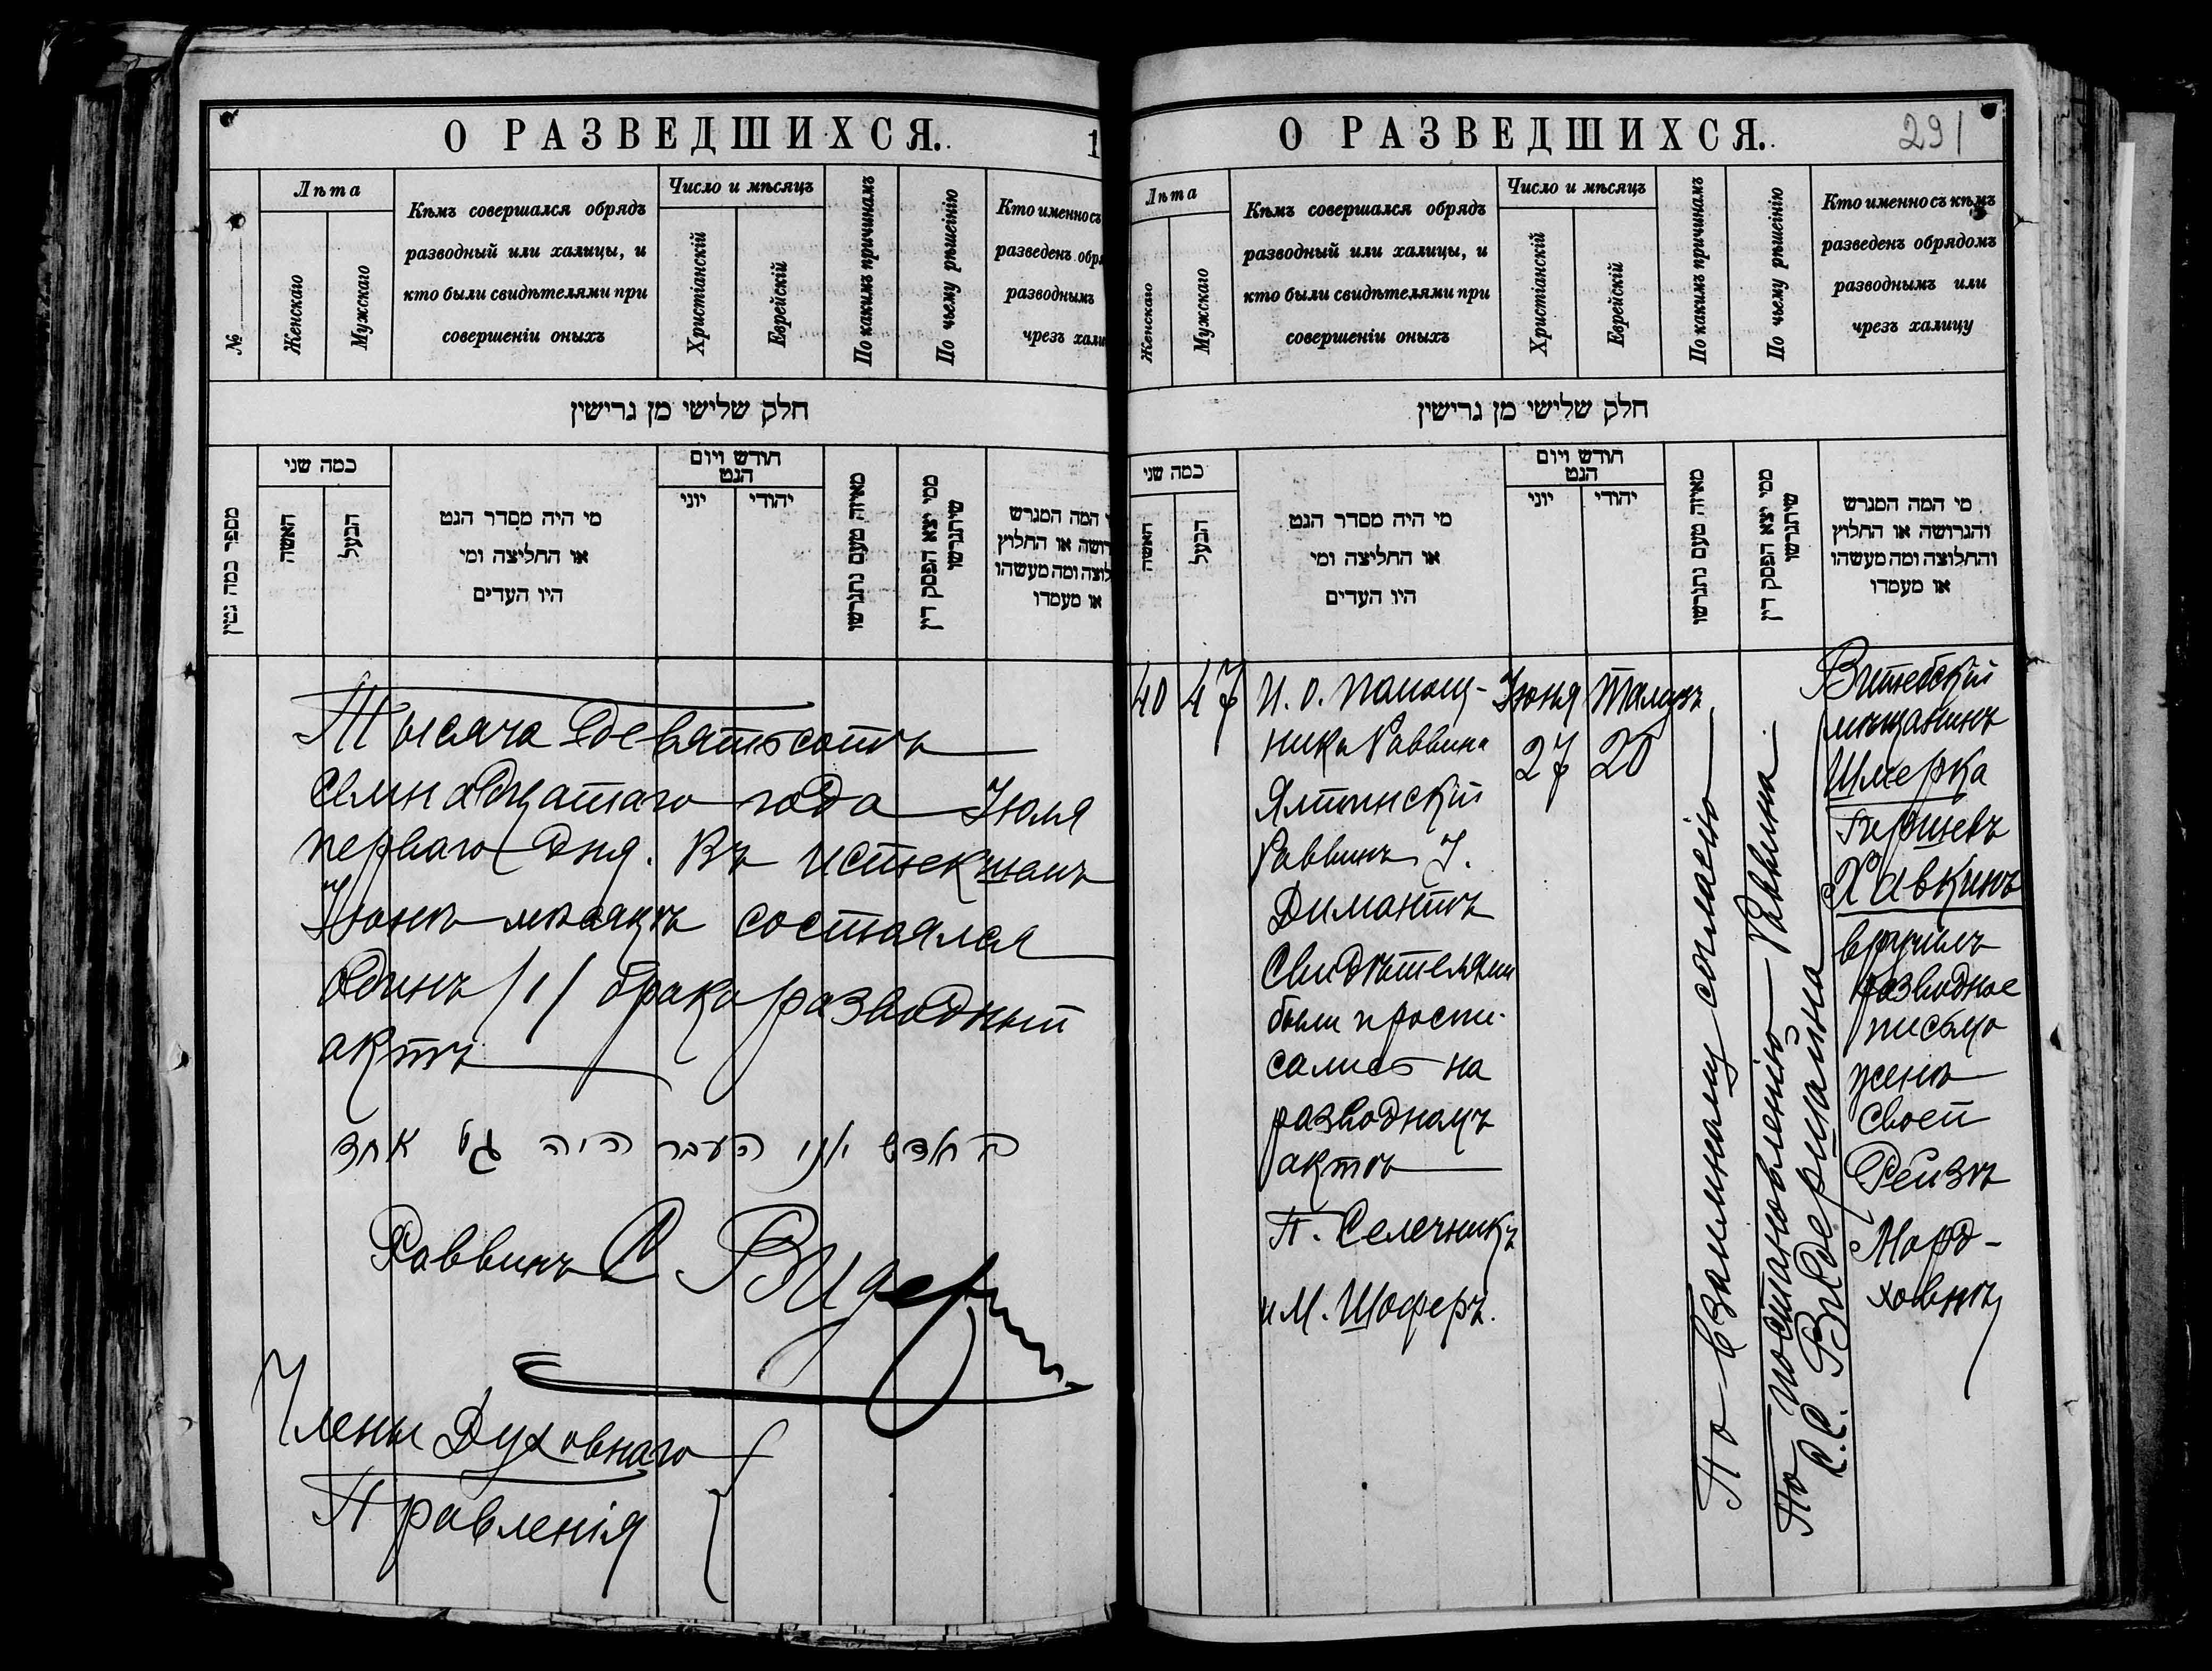 О РАЗВЕДШИХСЯ.
1
№
Лѣта
Женскаго
Мужскаго
Кѣмъ совершался обрядъ
разводный или халицы, и
кто были свидѣтелями при
совершеніи оныхъ
Число и мѣсяцъ
Христіанскій
Еврейскій
По какимъ причинамъ
По чьему рѣшенію
Кто именно съ
разведенъ
разводнымъ
чрезъ
חלק שלישי מן גרישין
מספר כמה גטין
כמה שני
האשה
הבעל
מי היה מסדר הגט
או החליצה ומי
היו העדים
חודש ויום
הגט
יוני
יהודי
מאיזה טעם נתגרשו
ממי יצא הפסק דין
שיתגרשו
המה המגרש
או החליץ
ומה מעשהו
או מעמדו
Тысяча девятьсотъ
семнадцатаго года Іюля
перваго дня. Въ истекшемъ
Іюнѣ мѣсяцѣ состоялся
одинъ /1/ бракоразводный
актъ
חדש יוני העבר היה גט אחד
Раввинъ С Видер
Члены Духовнаго
Правленія
О РАЗВЕДШИХСЯ.
291
Лѣта
Женскаго
Мужскаго
Кѣмъ совершался обрядъ
разводный или халицы, и
кто были свидѣтелями при
совершеніи оныхъ
Число и мѣсяцъ
Христіанскій
Еврейскій
По какимъ причинамъ
По чьему рѣшенію
Кто именно съ кѣмъ
разведенъ обрядомъ
разводнымъ или
чрезъ халицу
חלק שלישי מן גרישין
כמה שני
האשה
הבעל
מי היה מסדר הגט
או החליצה ומי
היו העדים
חודש ויום
הגט
יוני
יהודי
מאיזה טעם נתגרשו
ממי יצא הפסק דין
שיתגרשו
מי המה המגרש
והגרושה או החלוץ
והחלוצה ומה מעשהו
או מעמדו
40
47
И. о. помощ-
ника Раввина
Ялтинскій
Раввинъ І.
Димантъ
Свидѣтелями
были
на
разводномъ
актѣ
П. Селечникъ
и М. Шоферъ.
Іюня
27
Тамузъ
20
По взаимному согласію
По постановленію Раввина
С.С. Видермайна
Витебскій
мѣщанинъ
Шмерка
Гиршевъ
Хавкинъ
вручилъ
разводное
письмо
женѣ
своей
Рейзѣ
Морд-
ховнѣ